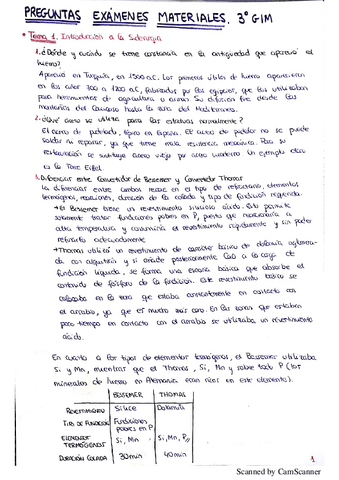 PREGUNTAS EXÁMENES MATERIALES. 3º GIM
• Tema 1. Introducción a la Siderurgia
1. ¿Dónde y cuándo se tiene constancia en la antigüedad que apareció el
hierro?
Apareció en Turquía, en 1500 a.C. Los primeros útiles de hierro aparecieron
en los años 900 a 1200 a.C, fabricados por los egipcios, que los utilizaban
para herramientas de agricultura o armas. Su difusión fue desde las
montañas del Caucaso hasta la zona del Mediterráneo.
2. ¿Qué acero se utiliza para las estatuas normalmente?
El acero de pudelado, típico en España. El acero de pudelar no se puede
soldar ni reparar, ya que tiene mala resistencia mecánica. Para su
restauración se sustituye acero viejo por acero moderno. Un ejemplo claro
es la Torre Eiffel.
3. Diferencias entre Convertidor de Bessemer y Convertidor Thomas
La diferencia entre ambos recae en el tipo de refractario, elementos
termógenos, reacciones, duración de la colada y tipo de fundición requerida.
→ El Bessemer tiene un revestimiento silicioso ácido. Esto permite
solamente tratar fundiciones pobres en P, puesto que reaccionaría a
alta temperatura y consumiría el revestimiento rápidamente y sin poder
refinarlo adecuadamente
→ Thomas utilizó un revestimiento de carácter básico de dolomía aglomera-
da con alquitrán y si añade posteriormente CaO a la carga de
fundición líquida, se forma una escoria básica que absorbe el
contenido de fósforo de la fundición. Este revestimiento básico se
colocaba en la zona que estaba constantemente en contacto con
el arrabio, ya que es mucho más caro. En las zonas que estaban
poco tiempo en contacto con el arrabio se utilizaba un revestimiento
ácido.
En cuanto a los tipos de elementos termógenos, el Bessemer utilizaba
Si y Mn, mientras que el Thomas, Si, Mn y sobre todo P (los
minerales de hierro en Alemania eran ricos en este elemento).
BESSEMER THOMAS
REVESTIMIENTO Sílice Dolomita
TIPOS DE FUNDICIÓN Fundiciones
pobres en P
ELEMENTOS
TERMÓGENOS Si, Mn Si, Mn, P
DURACIÓN COLADA 30 min 40 min
1
Scanned by CamScanner